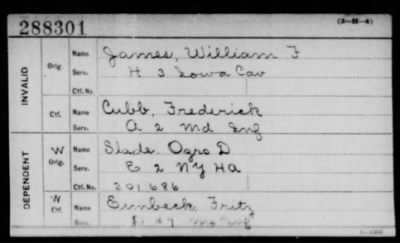 288301
(3-22-4)
INVALID
Orig.
Name James, William F
Serv. H 3 Iowa Cav
Ctf. No.
Ctf.
Name Cubb, Frederick
Serv. A 2 Md Inf
DEPENDENT
W
Orig.
Name Slade, Ogro D
Serv. E 2 NY HA
Ctf. No. 201686
W
Ctf.
Name Einbeck Fritz
Serv. 47 Mo Inf